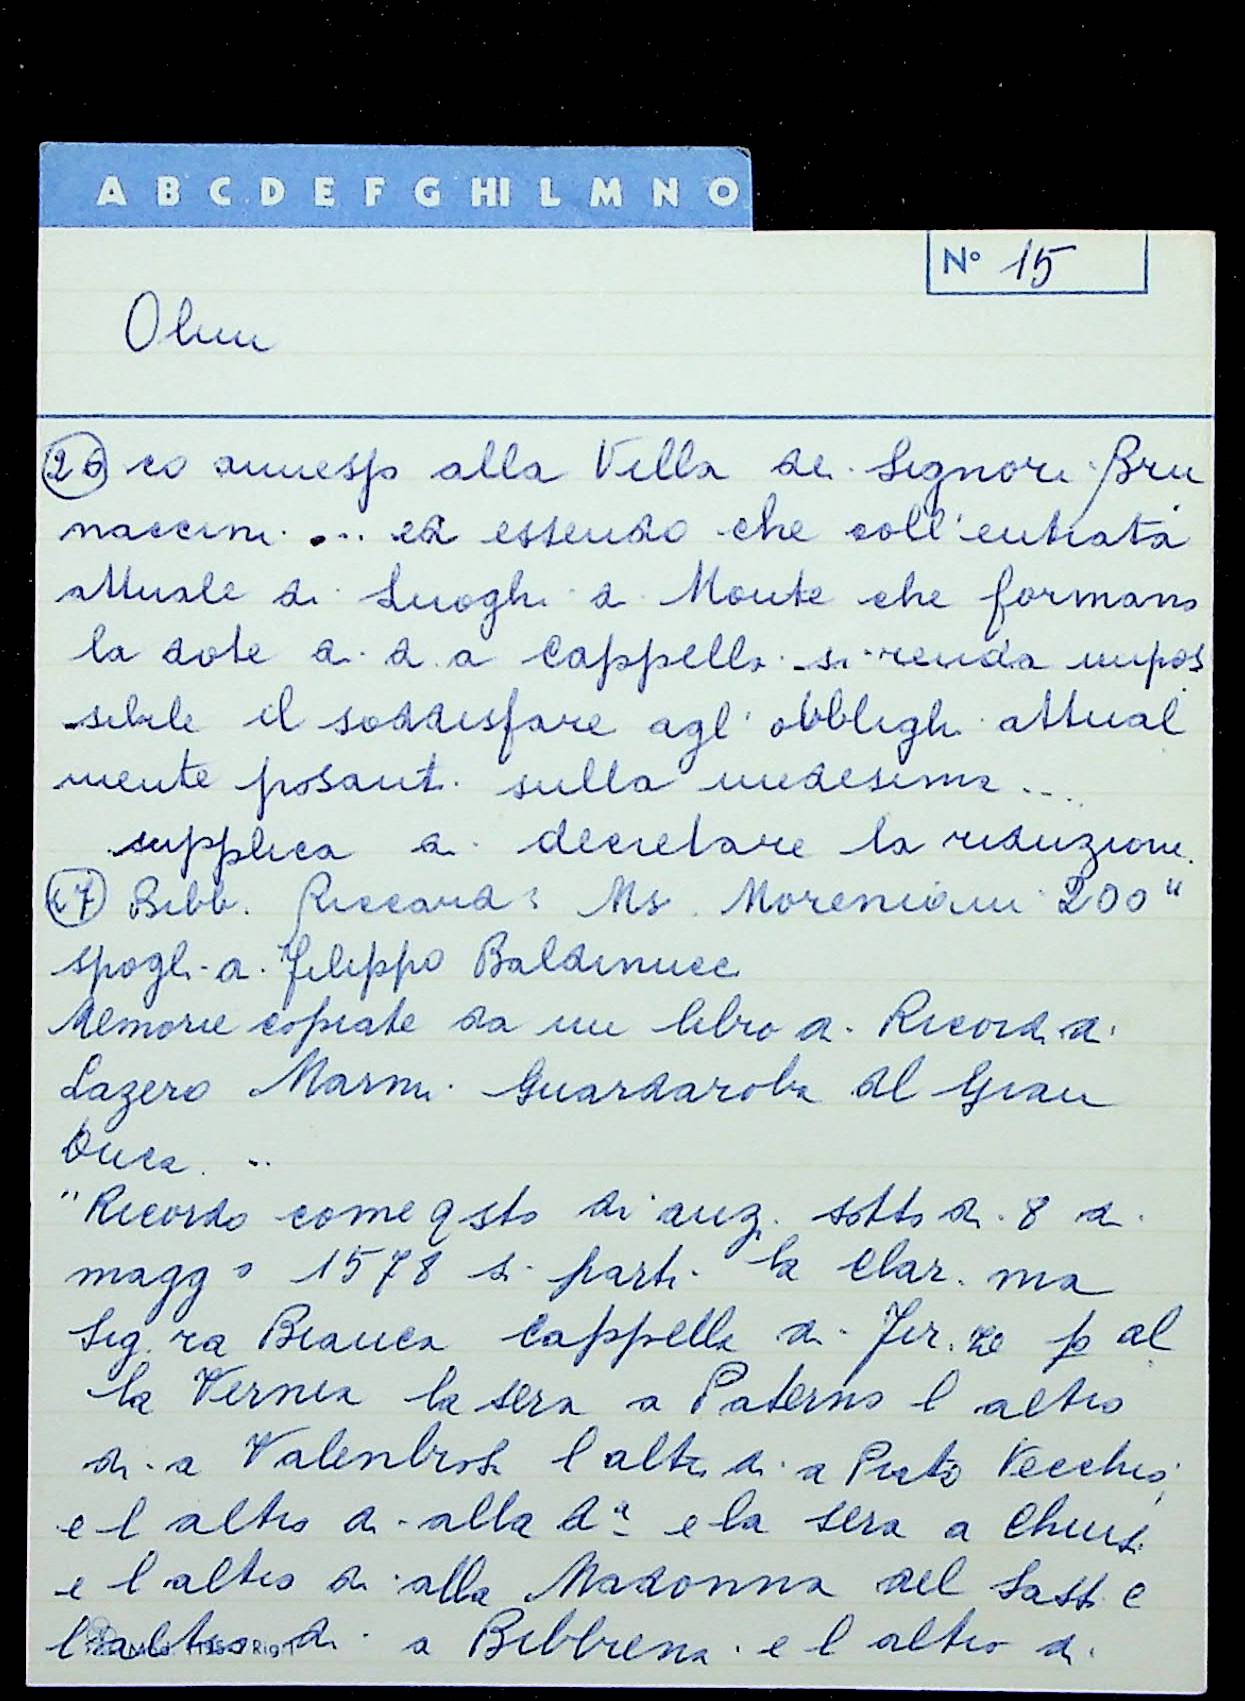 A B C D E F G HI L M N O
N° 15
Olmi
26 co annesso alla Villa dei Signori Bru
naccini ... ed essendo che coll'entrata
attuale di Luoghi di Monte che formano
la dote di d.a Cappella si renda impos
sibile il soddisfare agl'obblighi attual
mente posanti sulla medesima ....
supplica di decretare la riduzione.
27 Bibb. Riccard: Ms. Moreniani 200"
spogli di Filippo Baldinucci
Memorie copiate da un libro di Ricordi di
Lazero Marmi Guardaroba del Gran
Duca. ..
"Ricordo come qsto di anz. sotto di 8 di
magg o 1578 si parti la Clar.ma
Sig.ra Bianca Cappella di Fir.ze p al
la Vernia la sera a Paterno l altro
di a Valenbrosa l altro di a Prato Vecchio,
e l altro di alla d.a e la sera a Chiusi
e l altro di alla Madonna del Sasso e
l altro di a Bibbiena e l altro di